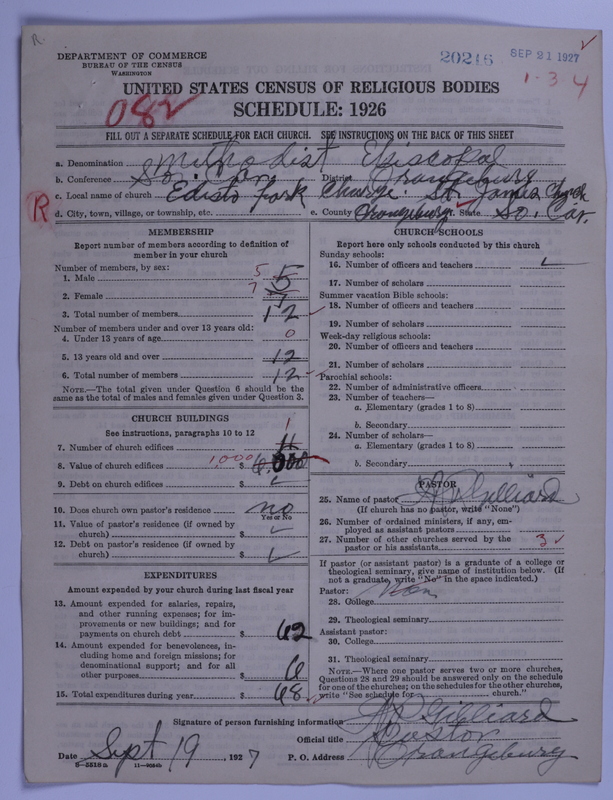 R.
DEPARTMENT OF COMMERCE
BUREAU OF THE CENSUS
WASHINGTON
20216 SEP 21 1927
1-3-4
UNITED STATES CENSUS OF RELIGIOUS BODIES
082
SCHEDULE: 1926
FILL OUT A SEPARATE SCHEDULE FOR EACH CHURCH. SEE INSTRUCTIONS ON THE BACK OF THIS SHEET
a. Denomination Methodist Episcopal
b. Conference So. Car. District Orangeburg
c. Local name of church Edisto Fork Charge St. James Church
R
d. City, town, village, or township, etc. e. County Orangeburg f. State So. Car.
MEMBERSHIP
Report number of members according to definition of member in your church
Number of members, by sex:
1. Male 5 5
2. Female 7 7
3. Total number of members 12
Number of members under and over 13 years old:
4. Under 13 years of age 0
5. 13 years old and over 12
6. Total number of members 12
NOTE.—The total given under Question 6 should be the same as the total of males and females given under Question 3.
CHURCH BUILDINGS
See instructions, paragraphs 10 to 12
7. Number of church edifices 1
8. Value of church edifices 1000 $
9. Debt on church edifices $
10. Does church own pastor's residence no
Yes or No
11. Value of pastor's residence (if owned by church) $
12. Debt on pastor's residence (if owned by church) $
EXPENDITURES
Amount expended by your church during last fiscal year
13. Amount expended for salaries, repairs, and other running expenses; for improvements or new buildings; and for payments on church debt $ 62
14. Amount expended for benevolences, including home and foreign missions; for denominational support; and for all other purposes $ 6
15. Total expenditures during year $ 68
CHURCH SCHOOLS
Report here only schools conducted by this church
Sunday schools:
16. Number of officers and teachers
17. Number of scholars
Summer vacation Bible schools:
18. Number of officers and teachers
19. Number of scholars
Week-day religious schools:
20. Number of officers and teachers
21. Number of scholars
Parochial schools:
22. Number of administrative officers
23. Number of teachers—
a. Elementary (grades 1 to 8)
b. Secondary
24. Number of scholars—
a. Elementary (grades 1 to 8)
b. Secondary
PASTOR
25. Name of pastor Gilliard
(If church has no pastor, write "None")
26. Number of ordained ministers, if any, employed as assistant pastors
27. Number of other churches served by the pastor or his assistants 3
If pastor (or assistant pastor) is a graduate of a college or theological seminary, give name of institution below. (If not a graduate, write "No" in the space indicated.)
Pastor:
28. College
29. Theological seminary
Assistant pastor:
30. College
31. Theological seminary
NOTE.—Where one pastor serves two or more churches, Questions 28 and 29 should be answered only on the schedule for one of the churches; on the schedules for the other churches, write "See schedule for church."
Signature of person furnishing information Gilliard
Official title Pastor
Date Sept 19, 1927 P. O. Address Orangeburg